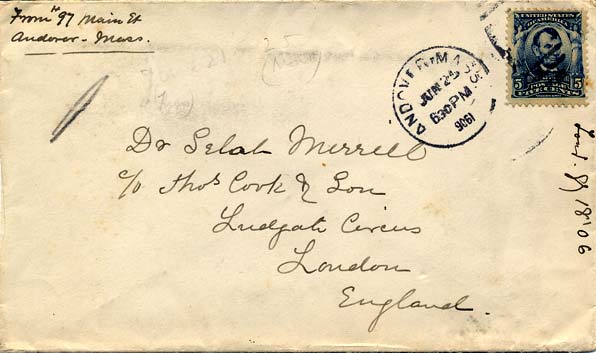 From 97 Main St
Andover - Mass.
ANDOVER MASS.
JUN 25
630 PM
1906
UNITED STATES
OF AMERICA
5 5
FIVE CENTS
Dr Selah Merrell
c/o Thos Cook & Son
Ludgate Circus
London
England.